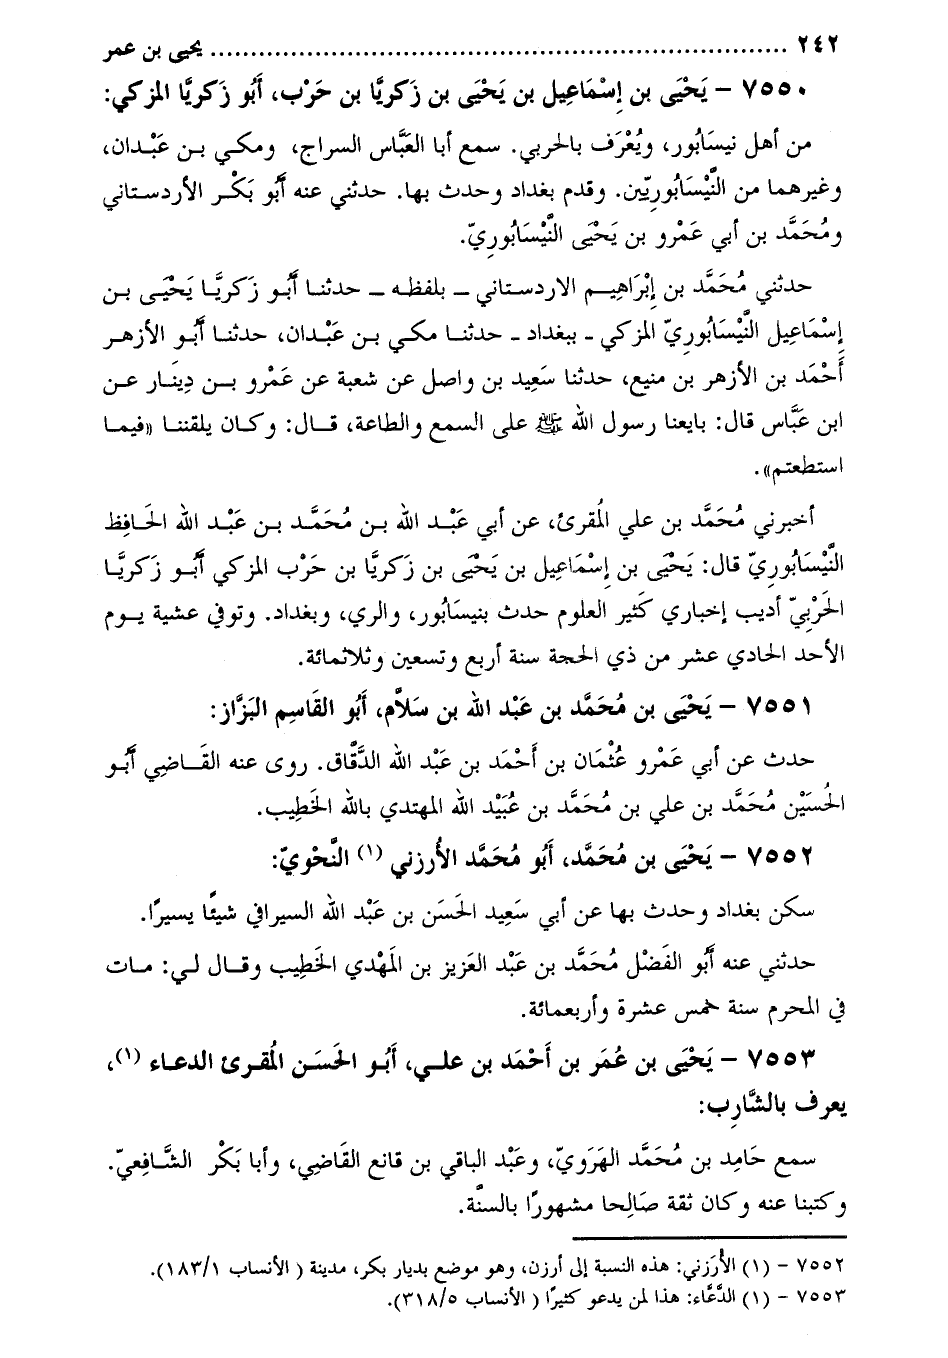 ٢٤٢ ........................................................................ يحيى بن عمر
٧٥٥٠ – يَحْيَى بن إسْمَاعِيل بن يَحْيَى بن زَكريَّا بن حَرْب، أَبُو زَكريَّا المزكي:
من أهل نيسَابُور، ويُعْرَف بالحربي. سمع أبا العَبَّاس السراج، ومكي بن عَبْدان،
وغيرهما من النَّيْسَابُوريِّين. وقدم بغداد وحدث بها. حدثني عنه أَبُو بَكْر الأردستاني
ومُحَمَّد بن أبي عَمْرو بن يَحْيَى النَّيْسَابُوريّ.
حدثني مُحَمَّد بن إبْرَاهِيم الاردستاني – بلفظه – حدثنا أَبُو زكريَّا يَحْيَى بن
إسْمَاعِيل النَّيْسَابُوريّ المزكي - ببغداد - حدثنا مكي بن عَبْدان، حدثنا أَبُو الأزهر
أَحْمَد بن الأزهر بن منيع، حدثنا سَعِيد بن واصل عن شعبة عن عَمْرو بن دِينَار عن
ابن عَبَّاس قال: بايعنا رسول الله ﷺ على السمع والطاعة، قال: وكان يلقننا «فيما
استطعتم».
أخبرني مُحَمَّد بن علي المُقرئ، عن أبي عَبْد الله بن مُحَمَّد بن عَبْد الله الحَافِظ
النَّيْسَابُوريّ قال: يَحْيَى بن إسْمَاعِيل بن يَحْيَى بن زكريَّا بن حَرْب المزكي أَبُو زكريَّا
الحَرْبِيّ أديب إخباري كَثير العلوم حدث بنيسَابُور، والري، وبغداد. وتوفي عشية يوم
الأحد الحادي عشر من ذي الحجة سنة أربع وتسعين وثلاثمائة.
٧٥٥١ – يَحْيَى بن مُحَمَّد بن عَبْد الله بن سَلاَّم، أَبُو القَاسِم البَزَّاز:
حدث عن أبي عَمْرو عُثْمَان بن أَحْمَد بن عَبْد الله الدَّقَّاق. روى عنه القَاضِي أَبُو
الحُسَيْن مُحَمَّد بن علي بن مُحَمَّد بن عُبَيْد الله المهتدي بالله الخَطِيب.
٧٥٥٢ – يَحْيَى بن مُحَمَّد، أَبُو مُحَمَّد الأُرزني (١) النَّحْويّ:
سكن بغداد وحدث بها عن أبي سَعِيد الحَسَن بن عَبْد الله السيرافي شيئًا يسيرًا.
حدثني عنه أَبُو الفَضْل مُحَمَّد بن عَبْد العَزيز بن المَهْدي الخَطِيب وقال لي: مات
في المحرم سنة خمس عشرة وأربعمائة.
٧٥٥٣ – يَحْيَى بن عُمَر بن أَحْمَد بن علي، أَبُو الحَسَن المُقرئ الدعاء (١)،
يعرف بالشَّارِب:
سمع حَامِد بن مُحَمَّد الهَرَويّ، وعَبْد الباقي بن قانع القَاضِي، وأبا بَكْر الشَّافِعيّ.
وكتبنا عنه وكان ثقة صَالِحا مشهورًا بالسنَّة.
٧٥٥٢ – (١) الأُرَزني: هذه النسبة إلى أرزن، وهو موضع بديار بكر، مدينة ( الأنساب ١٨٣/١).
٧٥٥٣ – (١) الدَّعَّاء: هذا لمن يدعو كثيرًا ( الأنساب ٣١٨/٥).